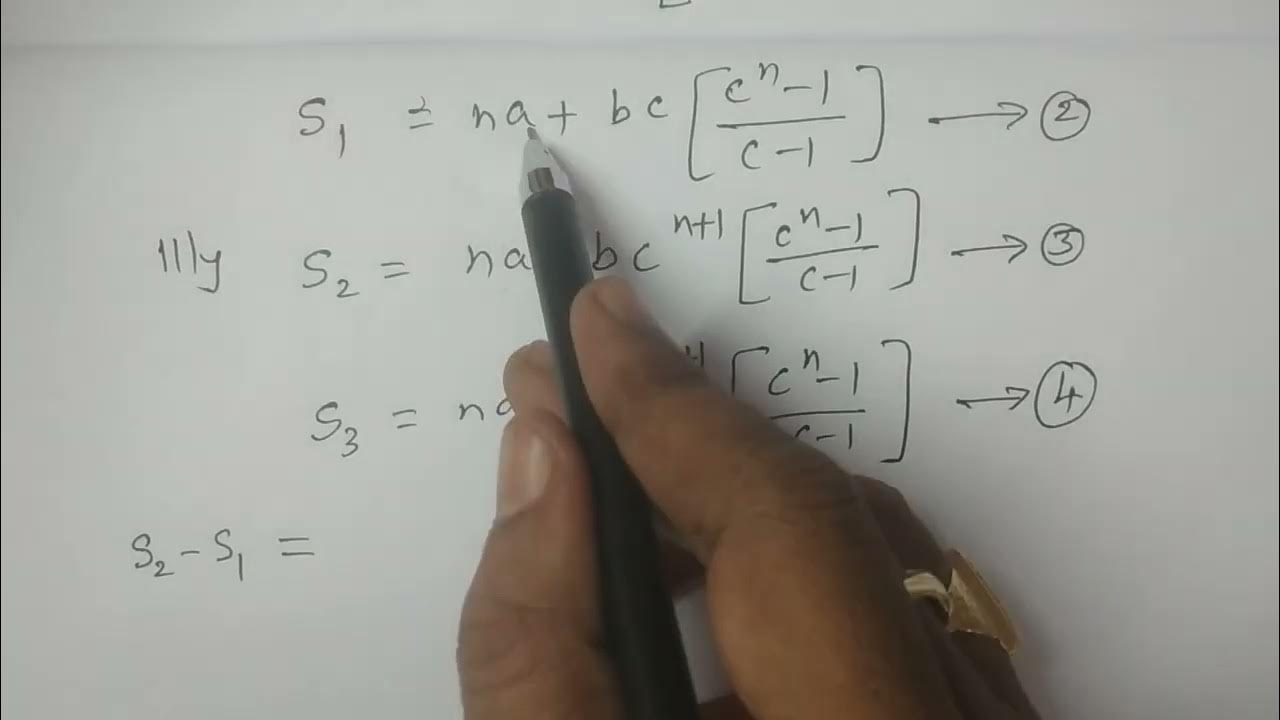 S₁ = na + bc [ (cⁿ - 1) / (c - 1) ] → ②
111ly S₂ = na bcⁿ⁺¹ [ (cⁿ - 1) / (c - 1) ] → ③
S₃ = na +1 [ (cⁿ - 1) / (c - 1) ] → ④
S₂ - S₁ =